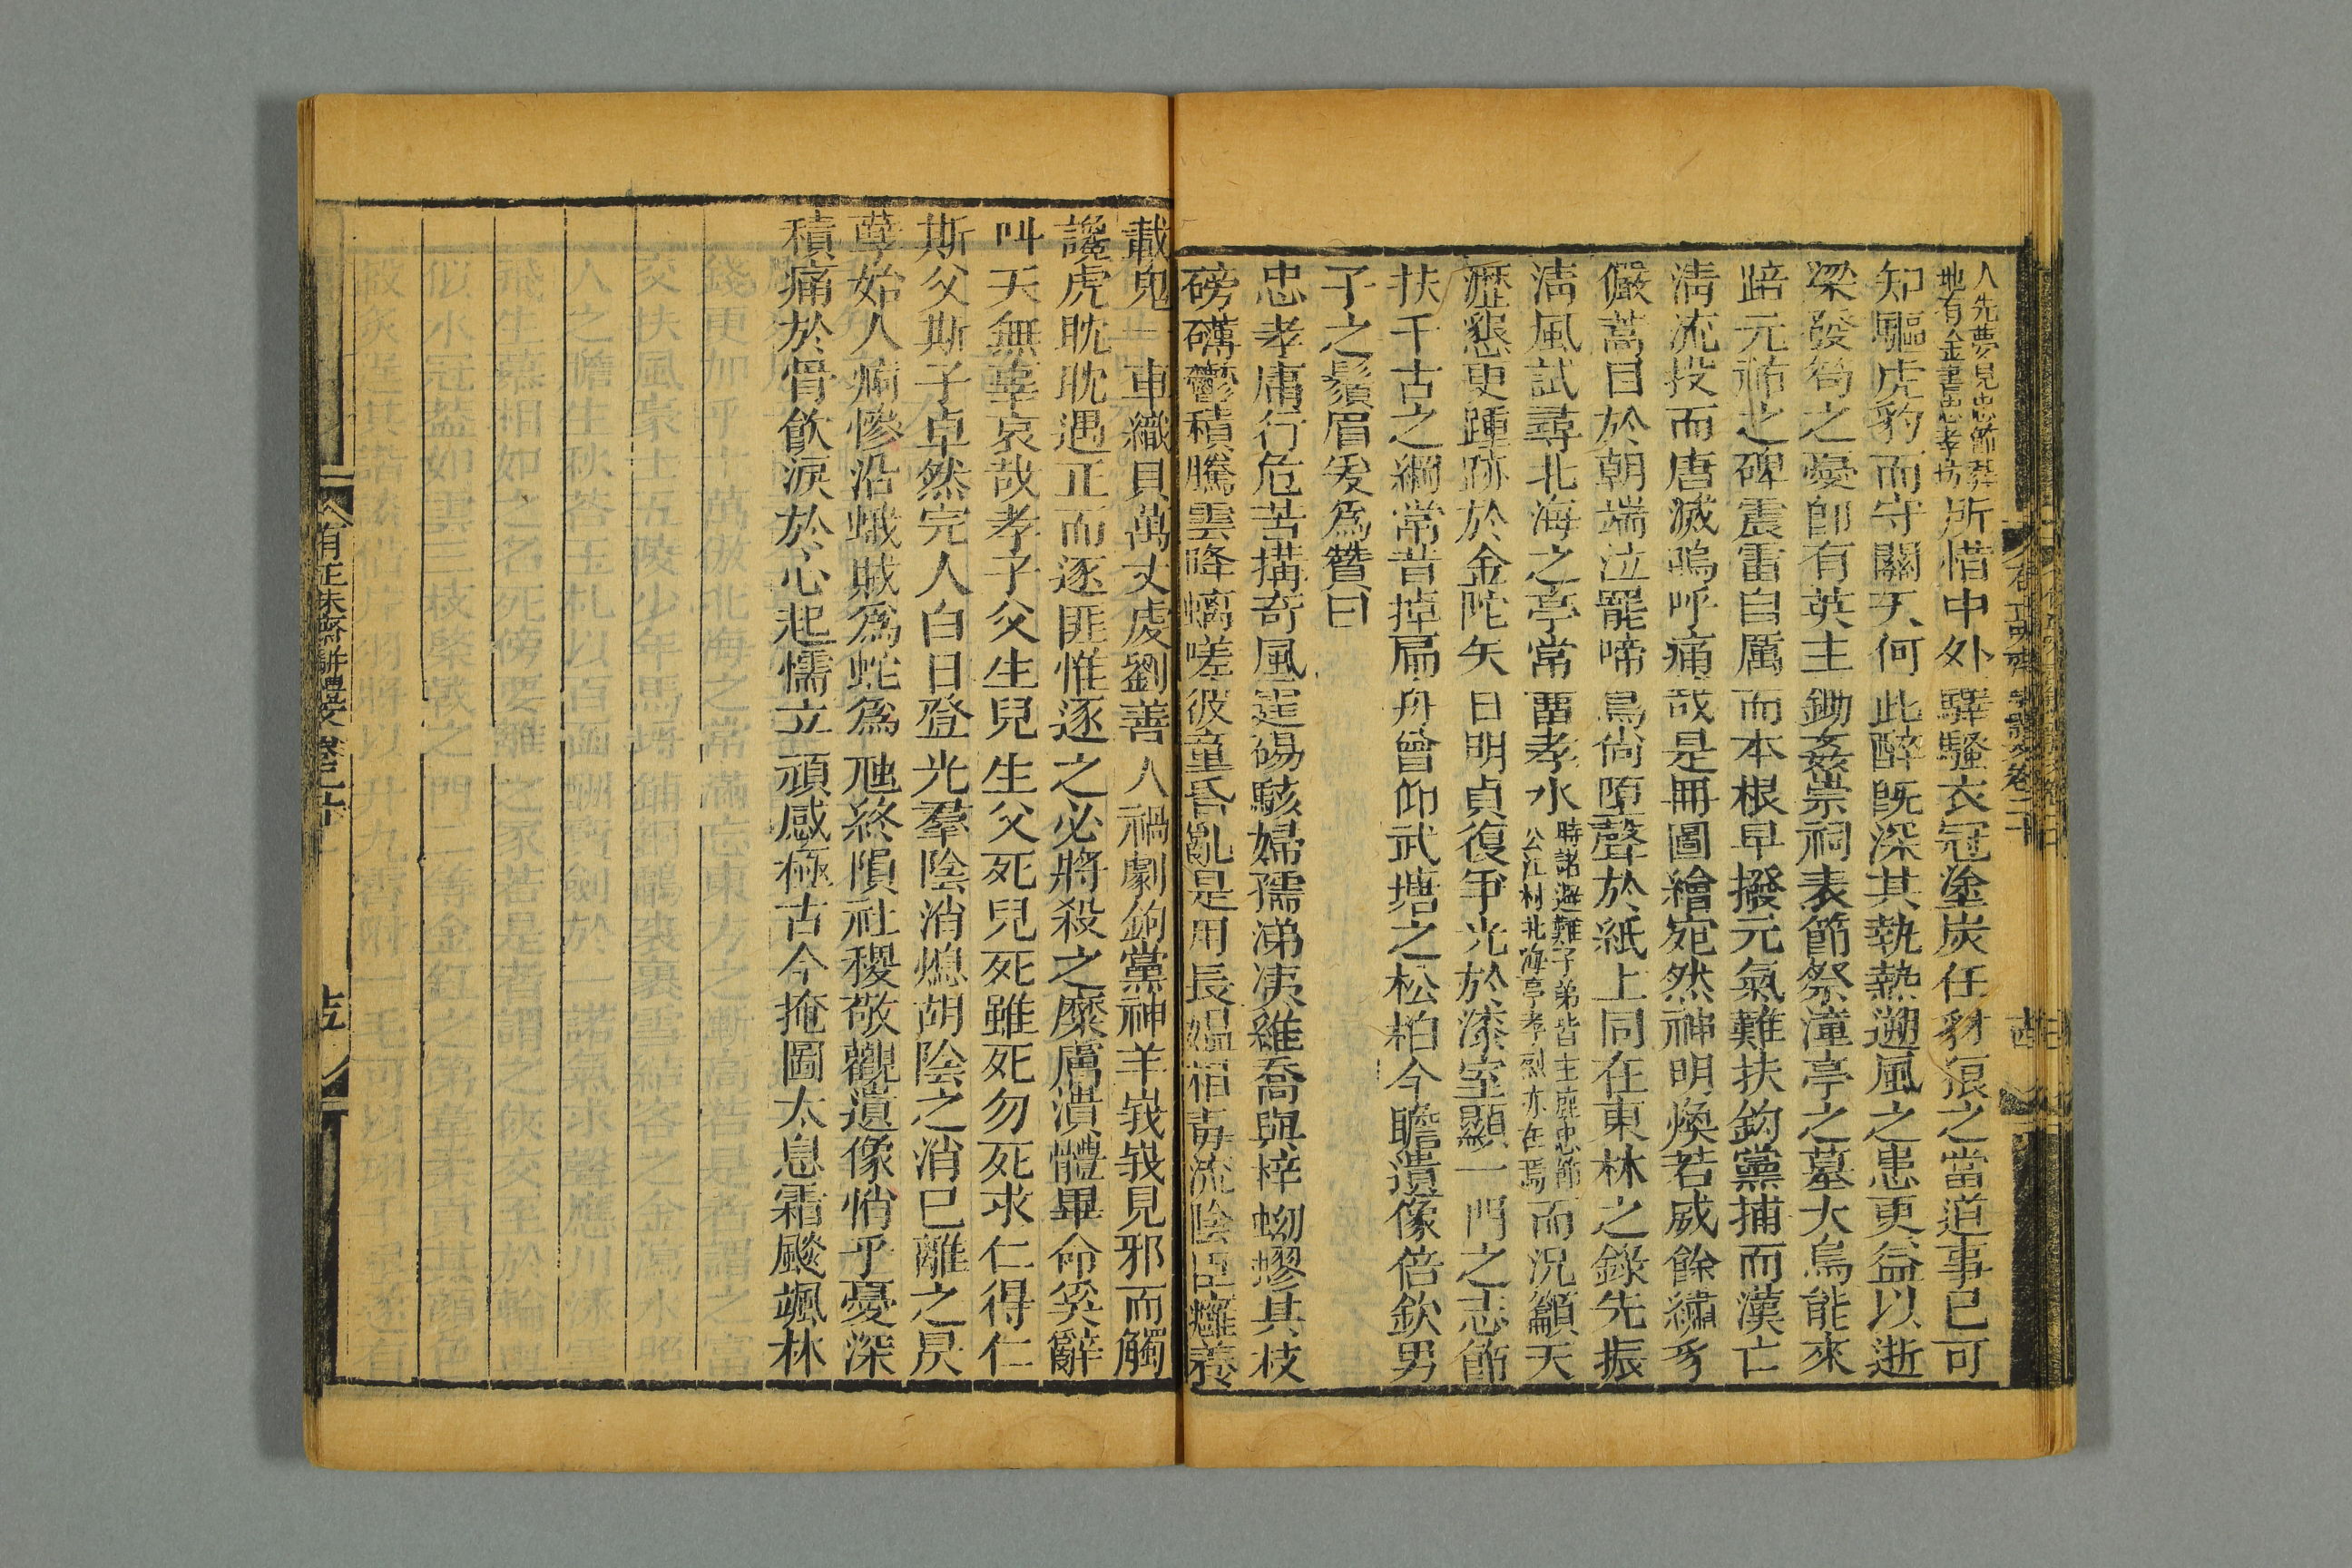 人先夢見忠節葬
地有金書忠孝坊
所惜中外驛騷衣冠塗炭任豺狼之當道事已可
知驅虎豹而守關天何此醉既深其執熱遡風之患更益以逝
梁發笱之憂卽有英主鋤姦崇祠表節祭潼亭之墓大鳥能來
踣元祐之碑震雷自厲而本根早撥元氣難扶鈎黨捕而漢亡
淸流投而唐滅嗚呼痛哉是冊圖繪宛然神明煥若威餘繡豸
儼蒿目於朝端泣罷啼烏尙墮聲於紙上同在東林之錄先振
淸風試尋北海之亭常畱孝水
時諸避難子弟皆主鹿忠節
公江村北海亭孝烈亦在焉
而況籲天
瀝懇吏踵跡於金陀矢日明貞復爭光於漆室顯一門之志節
扶千古之綱常昔掉扁舟曾仰武塘之松柏今瞻遺像倍欽男
子之鬚眉爰爲贊曰
忠孝庸行危苦搆奇風霆碭駭婦孺涕洟維喬與梓蚴蟉其枝
磅礴鬱積騰雲降螭嗟彼童昏亂是用長媪相毒流陰臣孽義
載鬼一車織貝萬丈虔劉善人禍劇鉤黨神羊峩峩見邪而觸
讒虎眈眈遇正而逐匪惟逐之必將殺之糜膚潰體畢命奚辭
叫天無辜哀哉孝子父生兒生父死兒死雖死勿死求仁得仁
斯父斯子卓然完人白日登光羣陰消熄胡陰之消已離之昃
孽始人痾慘沿蟻賊爲蛇爲虺終隕社稷敬觀遺像悄乎憂深
積痛於骨飮淚於心起懦立頑感極古今掩圖太息霜颷颯林
有正味齋駢體文卷二十